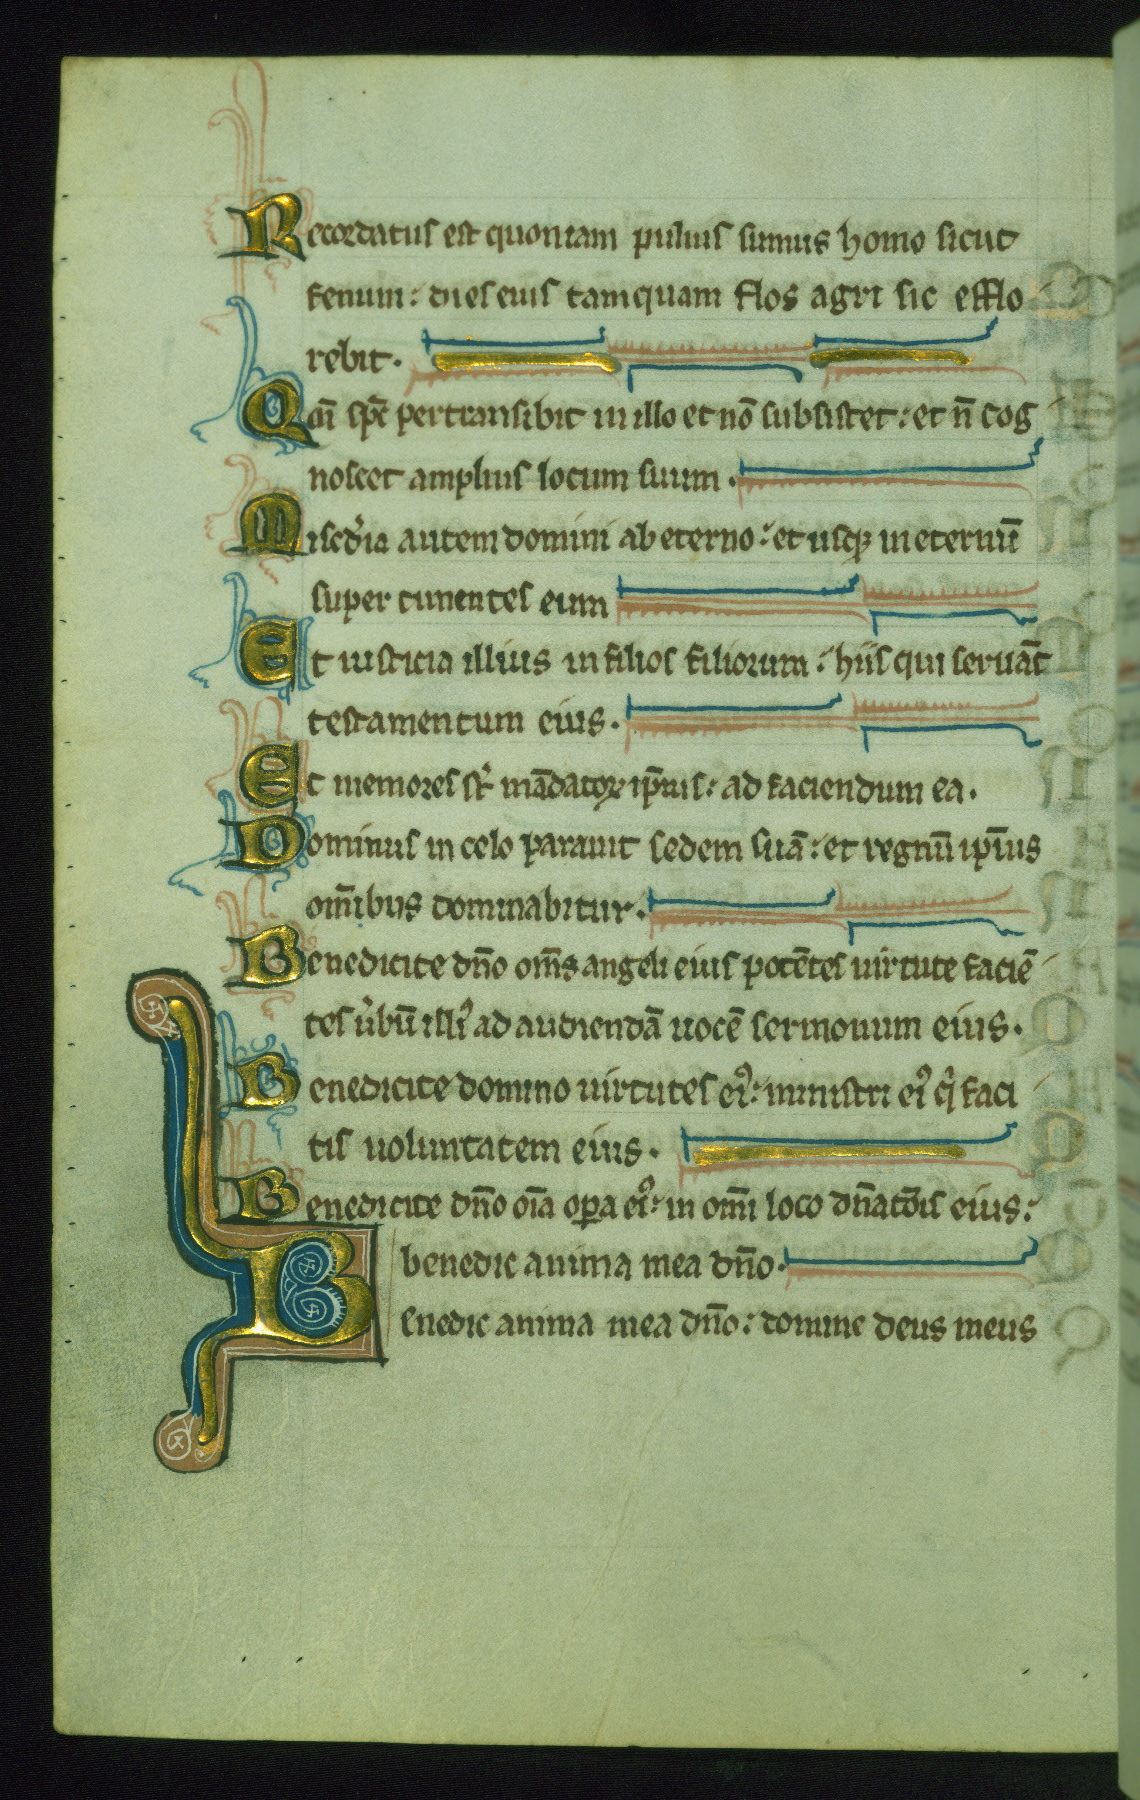 Recordatus est quoniam puluis sumus homo sicut
fenum: dies eius tamquam flos agri sic efflo
rebit.
Qm̄ sp̄c pertransibit in illo et nō subsistet: et n̄ cog
noscet amplius locum suum.
Misc̄dia autem domini ab eterno: et usq; in eternū
super timentes eum
Et iusticia illius in filios filiorum: hiis qui seruāt
testamentum eius.
Et memores st̄ mādatoꝝ ip̄ius: ad faciendum ea.
Dominus in celo parauit sedem suā: et regnū ip̄ius
om̄ibus dominabitur.
Benedicite dn̄o om̄s angeli eius potētes uirtute faciē
tes u̾bū illiꝰ ad audiendā uocē sermonum eius.
Benedicite domino uirtutes eiꝰ: ministri eiꝰ qͥ faci
tis uoluntatem eius.
Benedicite dn̄o oīa oꝑa eiꝰ: in om̄i loco dn̄atōis eius:
benedic anima mea dn̄o.
Benedic anima mea dn̄o: domine deus meus